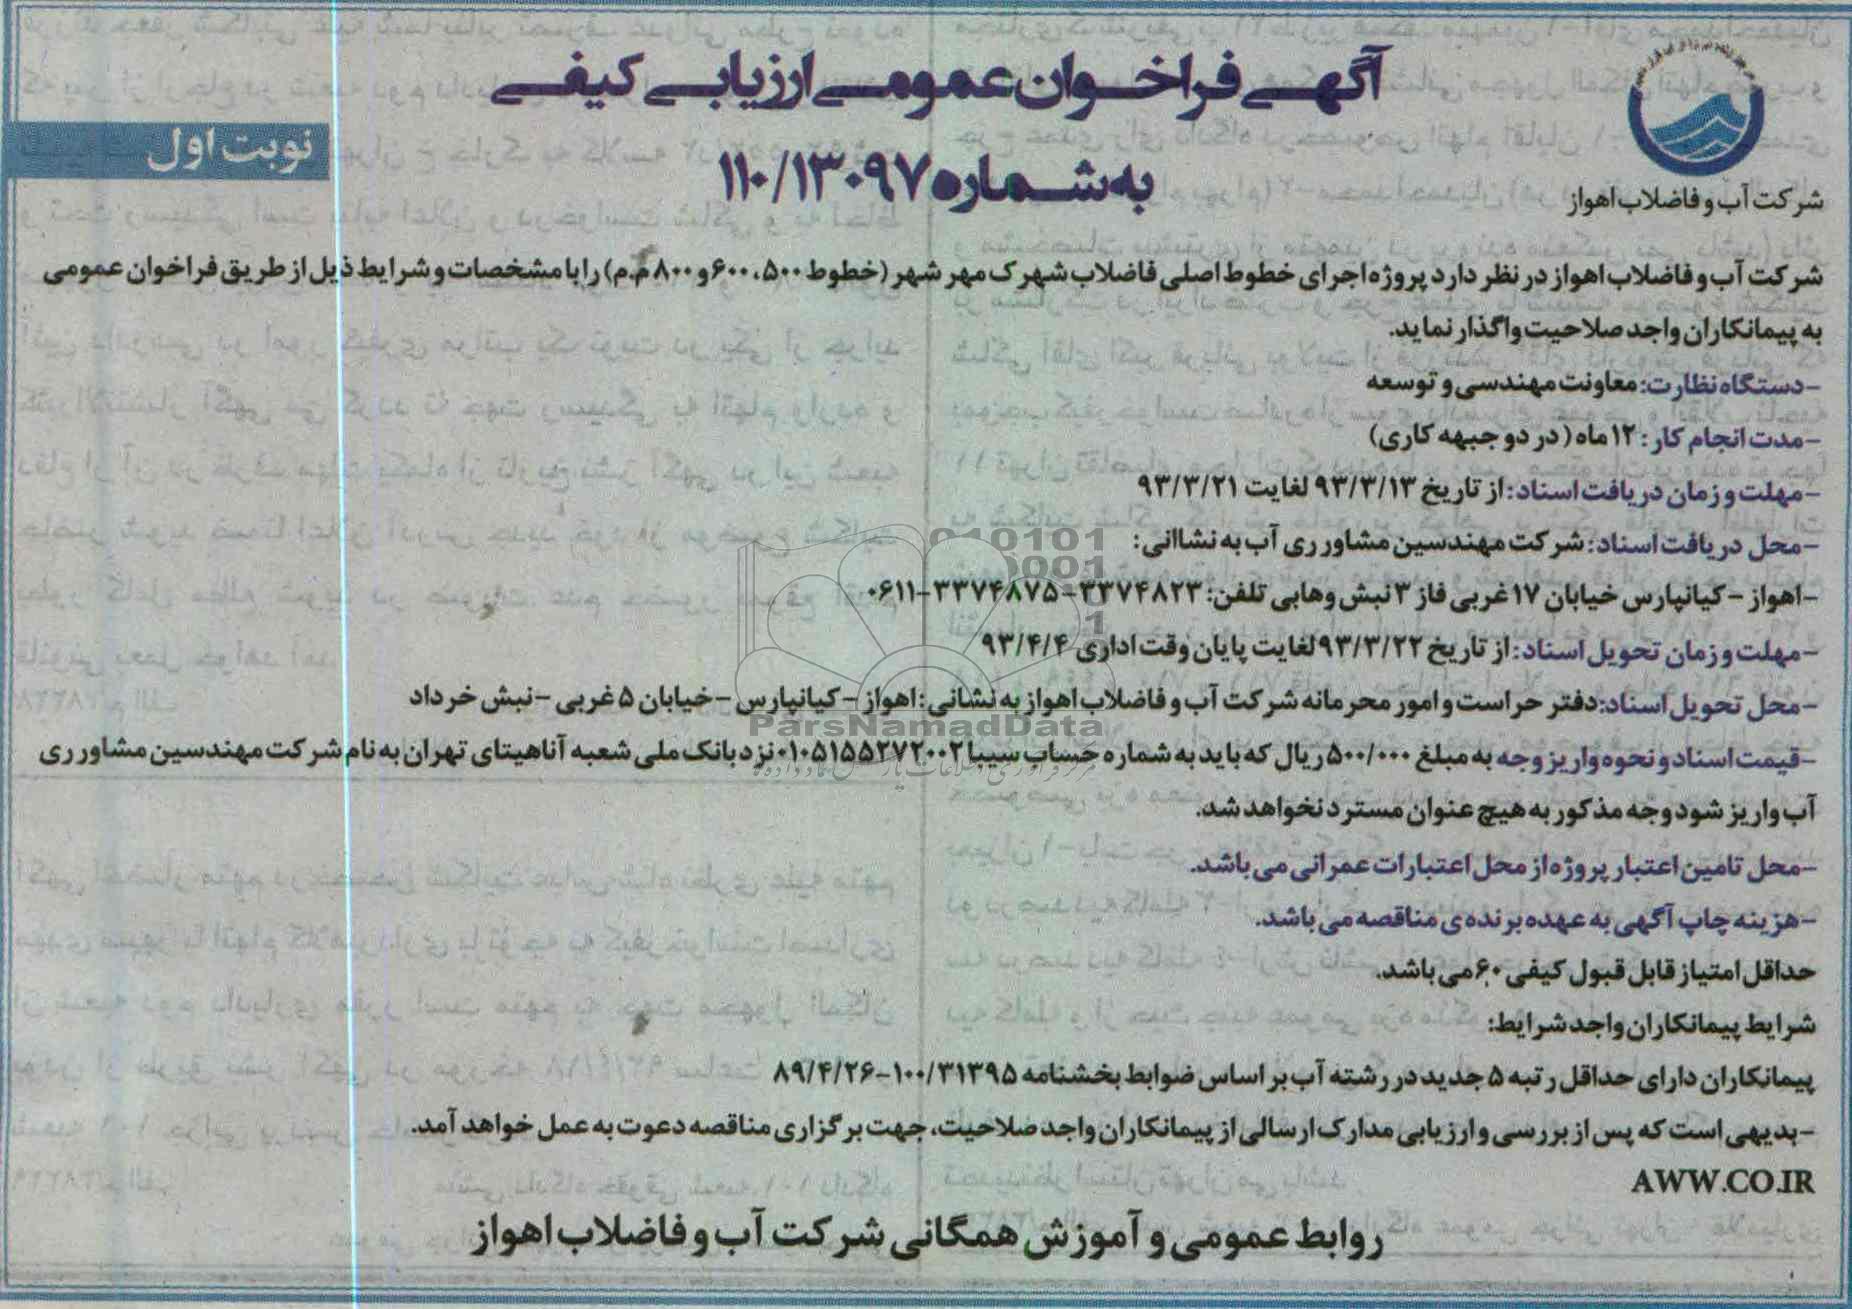 آگهی فراخوان عمومی ارزیابی کیفی
به شماره ۱۱۰/۱۳۰۹۷
نوبت اول
شرکت آب و فاضلاب اهواز
شرکت آب و فاضلاب اهواز در نظر دارد پروژه اجرای خطوط اصلی فاضلاب شهرک مهر شهر (خطوط ۵۰۰، ۶۰۰ و ۸۰۰ م.م) را با مشخصات و شرایط ذیل از طریق فراخوان عمومی
به پیمانکاران واجد صلاحیت واگذار نماید.
-دستگاه نظارت: معاونت مهندسی و توسعه
-مدت انجام کار: ۱۲ ماه (در دو جبهه کاری)
-مهلت و زمان دریافت اسناد: از تاریخ ۹۳/۳/۱۳ لغایت ۹۳/۳/۲۱
-محل دریافت اسناد: شرکت مهندسین مشاور ری آب به نشاانی:
-اهواز - کیانپارس خیابان ۱۷ غربی فاز ۳ نبش وهابی تلفن: ۳۳۷۴۸۲۳-۳۳۷۴۸۷۵-۰۶۱۱
-مهلت و زمان تحویل اسناد: از تاریخ ۹۳/۳/۲۲ لغایت پایان وقت اداری ۹۳/۴/۴
-محل تحویل اسناد: دفتر حراست و امور محرمانه شرکت آب و فاضلاب اهواز به نشانی: اهواز - کیانپارس - خیابان ۵ غربی - نبش خرداد
-قیمت اسناد و نحوه واریز وجه به مبلغ ۵۰۰/۰۰۰ ریال که باید به شماره حساب سیبا ۰۱۰۵۱۵۵۲۷۲۰۰۲ نزد بانک ملی شعبه آناهیتای تهران به نام شرکت مهندسین مشاور ری
آب واریز شود وجه مذکور به هیچ عنوان مسترد نخواهد شد.
-محل تامین اعتبار پروژه از محل اعتبارات عمرانی می باشد.
-هزینه چاپ آگهی به عهده برنده ی مناقصه می باشد.
حداقل امتیاز قابل قبول کیفی ۶۰ می باشد.
شرایط پیمانکاران واجد شرایط:
پیمانکاران دارای حداقل رتبه ۵ جدید در رشته آب بر اساس ضوابط بخشنامه ۱۰۰/۳۱۳۹۵-۸۹/۴/۲۶
-بدیهی است که پس از بررسی و ارزیابی مدارک ارسالی از پیمانکاران واجد صلاحیت، جهت برگزاری مناقصه دعوت به عمل خواهد آمد.
AWW.CO.IR
روابط عمومی و آموزش همگانی شرکت آب و فاضلاب اهواز
ParsNamadData